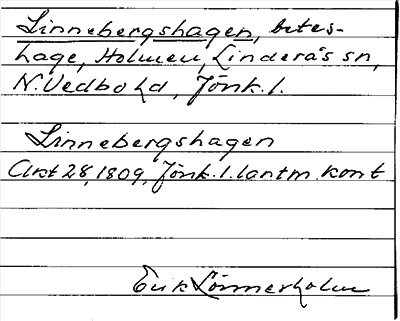 Linnebergshagen, betes-
hage, Holmen, Linderås sn,
N. Vedbo hd, Jönk. l.
Linnebergshagen
Akt 28, 1809, Jönk. l. lantm. kont
Erik Lönnerholm